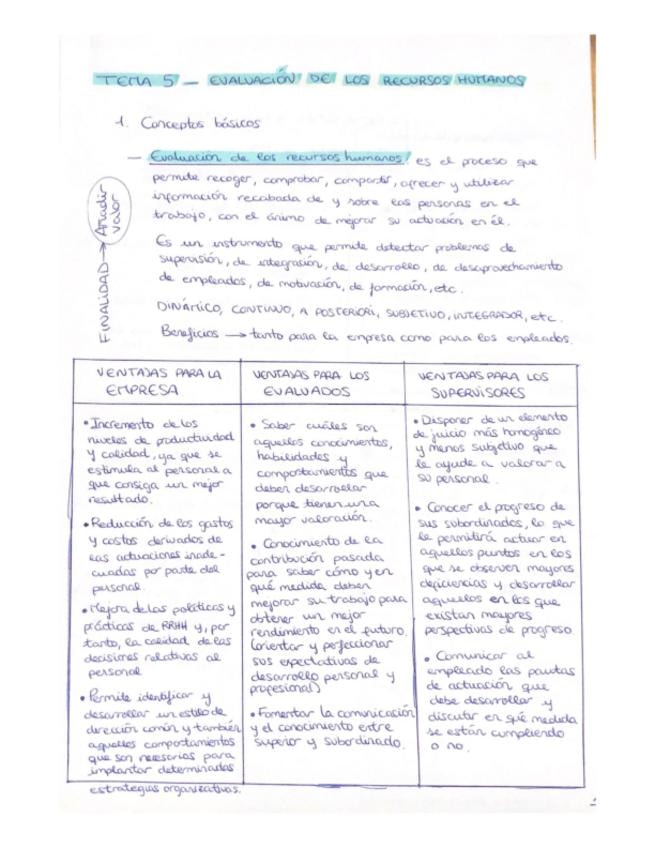 TEMA 5 — EVALUACIÓN DE LOS RECURSOS HUMANOS
1. Conceptos básicos
— Evaluación de los recursos humanos: es el proceso que
permite recoger, comprobar, compartir, ofrecer y utilizar
información recabada de y sobre las personas en el
trabajo, con el ánimo de mejorar su actuación en él.
FINALIDAD → Añadir
valor
Es un instrumento que permite detectar problemas de
supervisión, de integración, de desarrollo, de desaprovechamiento
de empleados, de motivación, de formación, etc.
DINÁMICO, CONTINUO, A POSTERIORI, SUBJETIVO, INTEGRADOR, etc.
Beneficios → tanto para la empresa como para los empleados.
VENTAJAS PARA LA
EMPRESA
• Incremento de los
niveles de productividad
y calidad, ya que se
estimula al personal a
que consiga un mejor
resultado.
• Reducción de los gastos
y costos derivados de
las actuaciones inade-
cuadas por parte del
personal.
• Mejora de las políticas y
prácticas de RRHH y, por
tanto, la calidad de las
decisiones relativas al
personal
• Permite identificar y
desarrollar un estilo de
dirección común y también
aquellos comportamientos
que son necesarios para
implantar determinadas
estrategias organizativas.
VENTAJAS PARA LOS
EVALUADOS
• Saber cuáles son
aquellos conocimientos,
habilidades y
comportamientos que
deben desarrollar
porque tienen una
mayor valoración.
• Conocimiento de la
contribución pasada
para saber cómo y en
qué medida deben
mejorar su trabajo para
obtener un mejor
rendimiento en el futuro.
(orientar y perfeccionar
sus expectativas de
desarrollo personal y
profesional)
• Fomentar la comunicación
y el conocimiento entre
superior y subordinado.
VENTAJAS PARA LOS
SUPERVISORES
• Disponer de un elemento
de juicio más homogéneo
y menos subjetivo que
le ayude a valorar a
su personal.
• Conocer el progreso de
sus subordinados, lo que
le permitirá actuar en
aquellos puntos en los
que se observen mayores
deficiencias y desarrollar
aquellos en los que
existan mayores
perspectivas de progreso.
• Comunicar al
empleado las pautas
de actuación que
debe desarrollar y
discutir en qué medida
se están cumpliendo
o no.